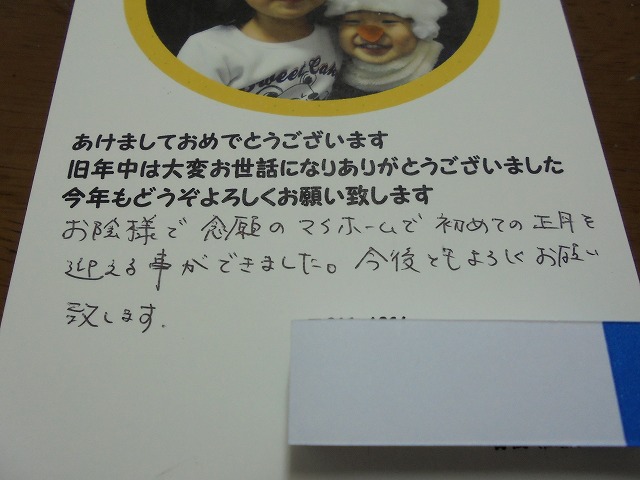 Sweet Cake
あけましておめでとうございます
旧年中は大変お世話になりありがとうございました
今年もどうぞよろしくお願い致します
お陰様で念願のマイホームで初めての正月を
迎える事ができました。今後ともよろしくお願い
致します.